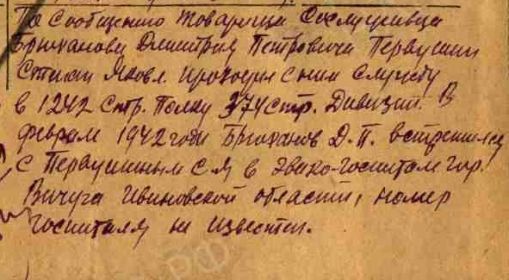 По сообщению товарища сослуживца
Брюханову Дмитрия Петровича Первушин
Яковл. проходил с ним службу
в 1242 стр. полку 374 стр. Дивизии. В
феврале 1942 года Брюханов Д.П. встречался
с Первушиным С.Я в эвако-госпитале гор.
Вичуга Ивановской области, номер
госпиталя не известен.